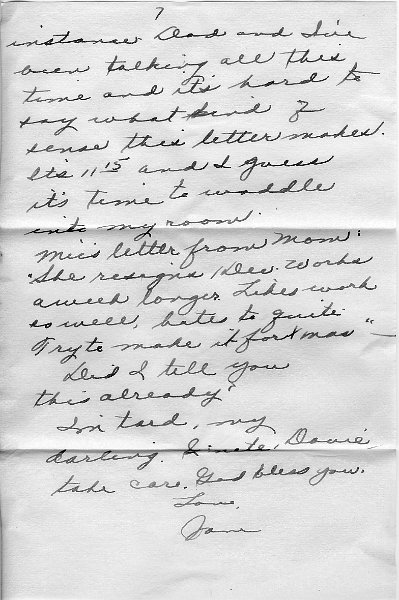 7
instance. Dad and I've
been talking all this
time and it's hard to
say what kind of
sense this letter makes.
It's 11 15 and I guess
it's time to waddle
into my room.
Mic's letter from Mom:
"She resigns 1 Dec. Works
a week longer. Likes work
so well, hates to quite.
Try to make it for Xmas" —
Did I tell you
this already?
I'm tard, my
darling. Davie,
take care. God bless you.
Love,
Jane